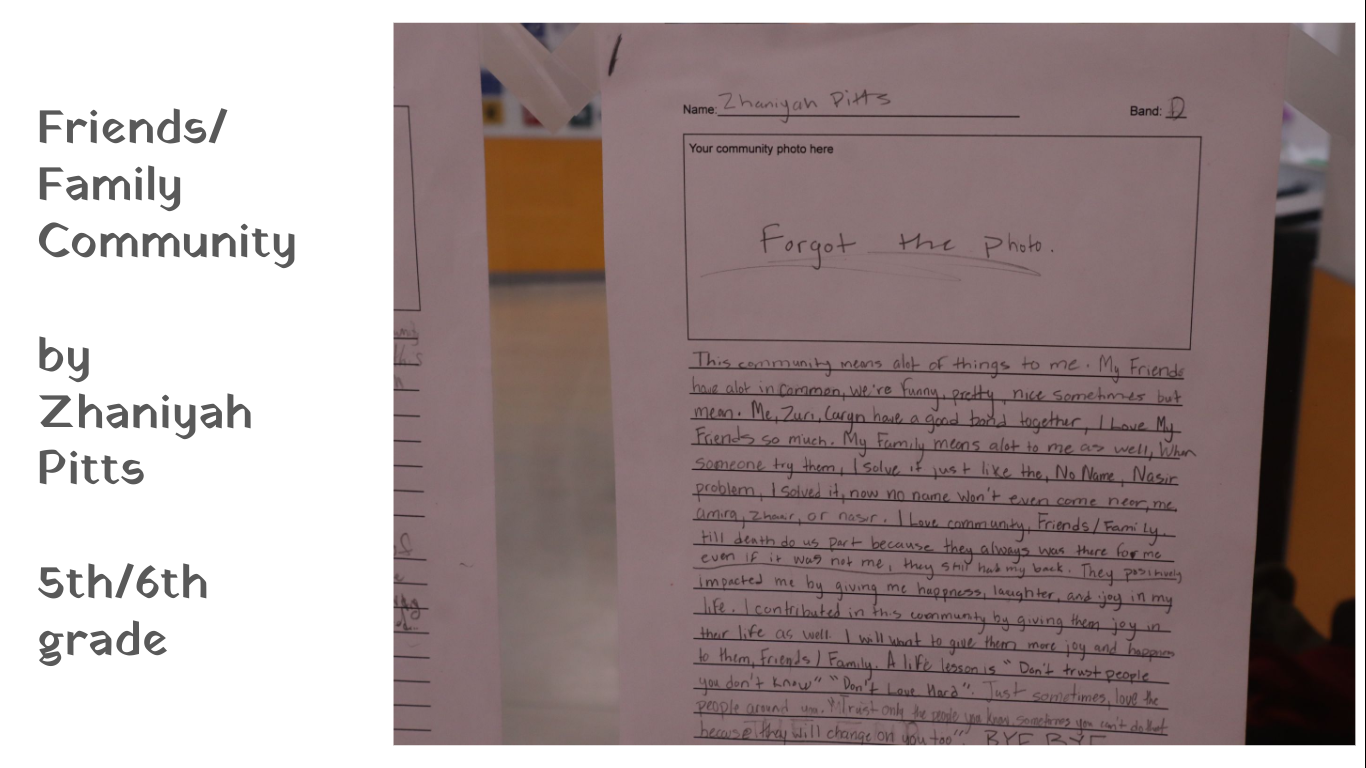 Friends/
Family
Community
by
Zhaniyah
Pitts
5th/6th
grade
Name: Zhaniyah Pitts Band: D
Your community photo here
Forgot the photo.
This community means alot of things to me. My Friends
have alot in common, we're funny, pretty, nice sometimes but
mean. Me, Zuri, Caryn have a good bond together, I Love My
Friends so much. My Family means alot to me as well, When
someone try them, I solve it just like the, No Name, Nasir
problem, I solved it, now no name won't even come near, me,
amira, Zhanir, or nasir. I Love community, Friends/Family.
till death do us part because they always was there for me
even if it was not me, they still had my back. They positively
impacted me by giving me happness, laughter, and joy in my
life. I contributed in this community by giving them joy in
their life as well. I will want to give them more joy and happness
to them, Friends/Family. A life lesson is "Don't trust people
you don't know" "Don't Love Hard". Just sometimes, love the
people around you. "Trust only the people you know, sometimes you can't do that
because they will change on you too". BYE BYE